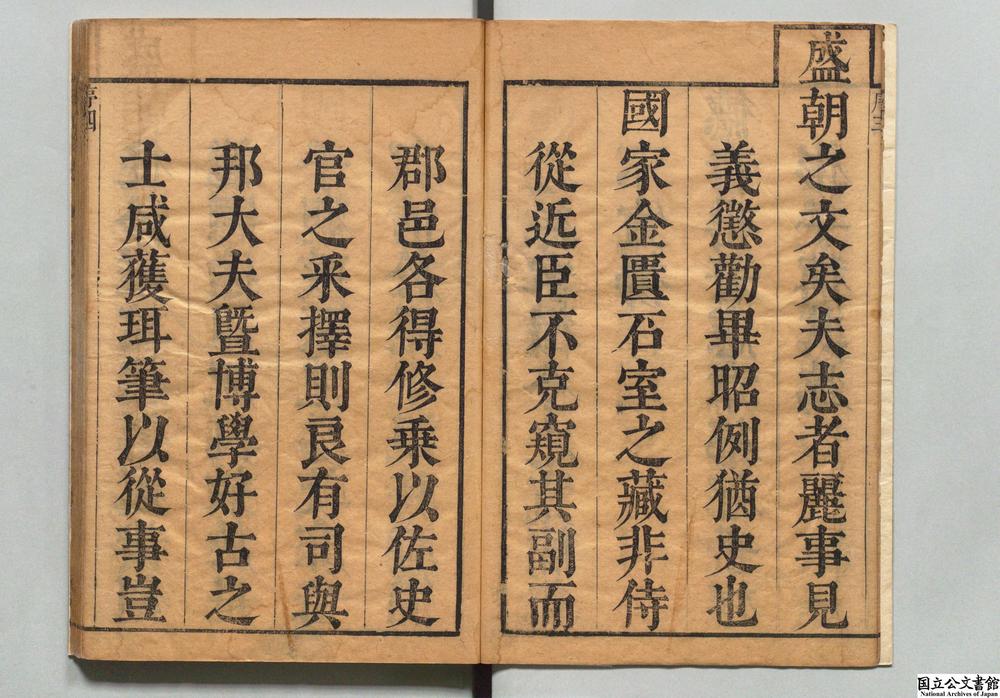 盛朝之文矣夫志者麗事見
義懲勸畢昭例猶史也
國家金匱石室之藏非侍
從近臣不克窺其副而
郡邑各得修乗以佐史
官之釆擇則良有司與
邦大夫曁博學好古之
士咸獲珥筆以從事豈
序四
国立公文書館
National Archives of Japan